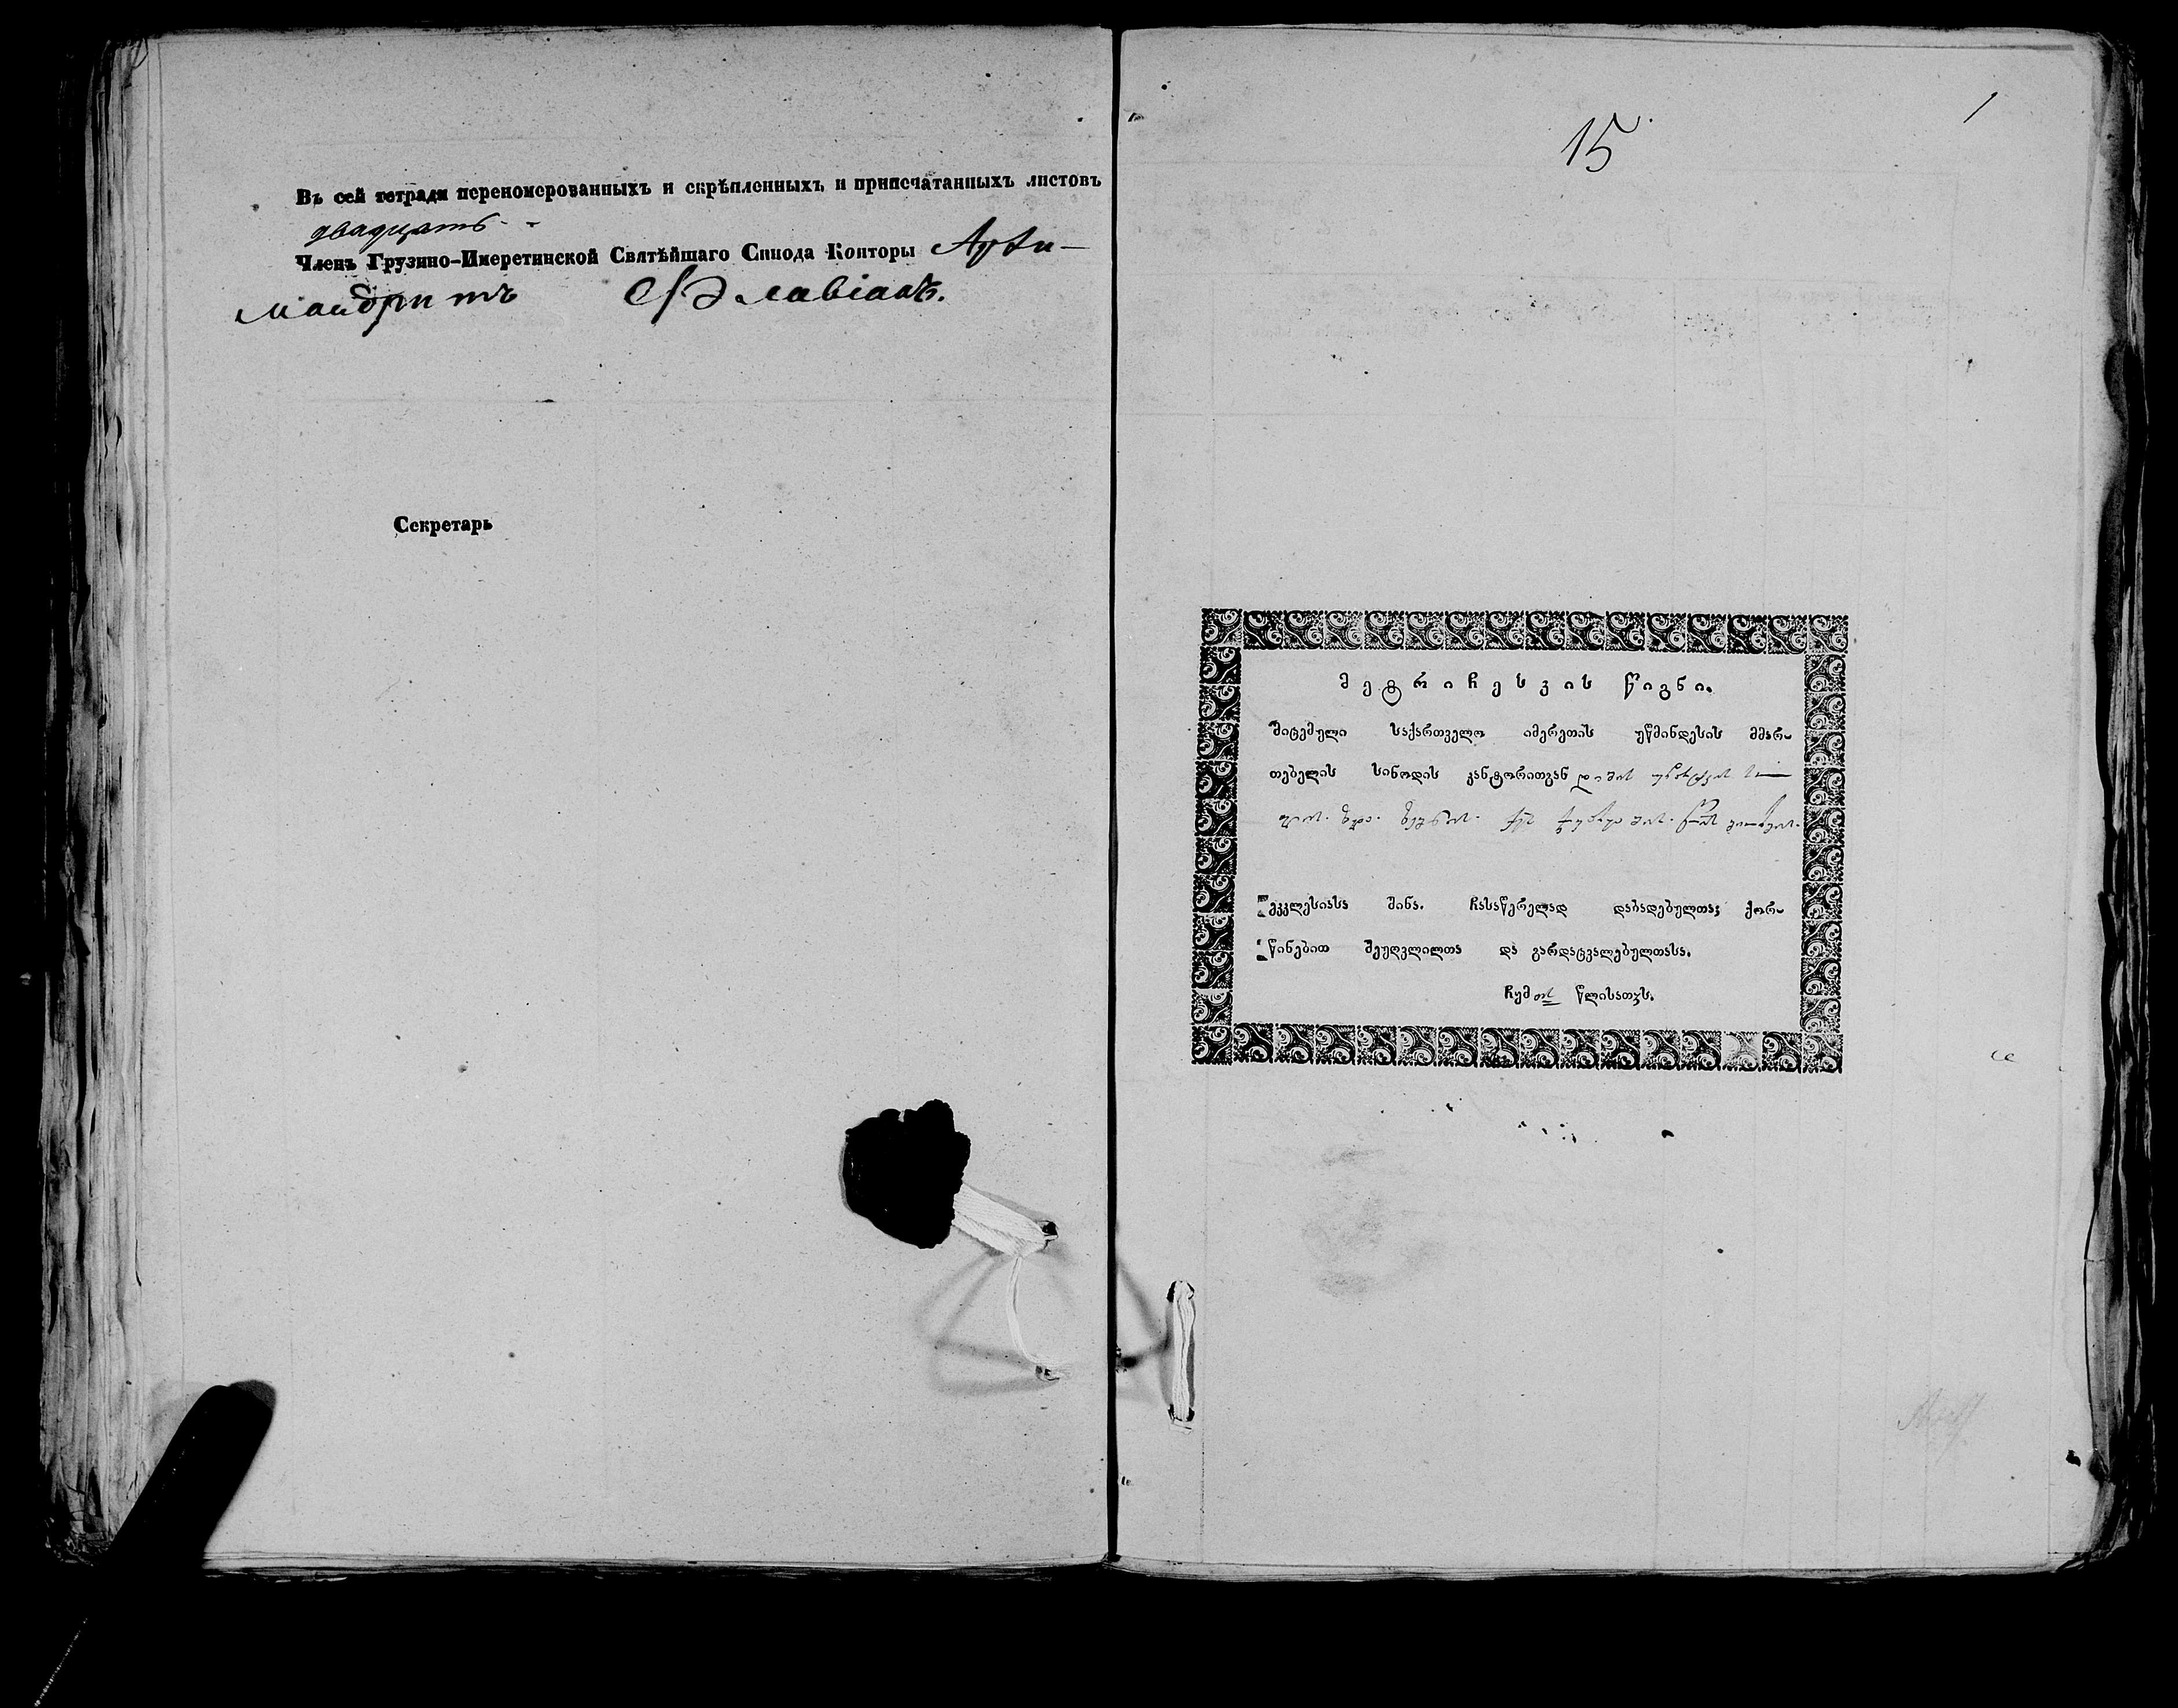 Въ сей тетради переномерованныхъ и скрѣпленныхъ и припечатанныхъ листовъ
двадцать
Членъ Грузино-Имеретинской Святѣйшаго Синода Конторы Архи-
мандритъ Флавіанъ.
Секретарь
1
15
მეტრიჩესკის წიგნი.
მიცემული საქართველო იმერეთის უწმინდესის მმარ-
თებელის სინოდის კანტორითგან
ეკკლესიასა შინა. ჩასაწერელად დაბადებულთა; ქორ-
წინებით შეუღვლილთა და გარდაცვალებულთასა.
ჩყმ წლისათჳს.